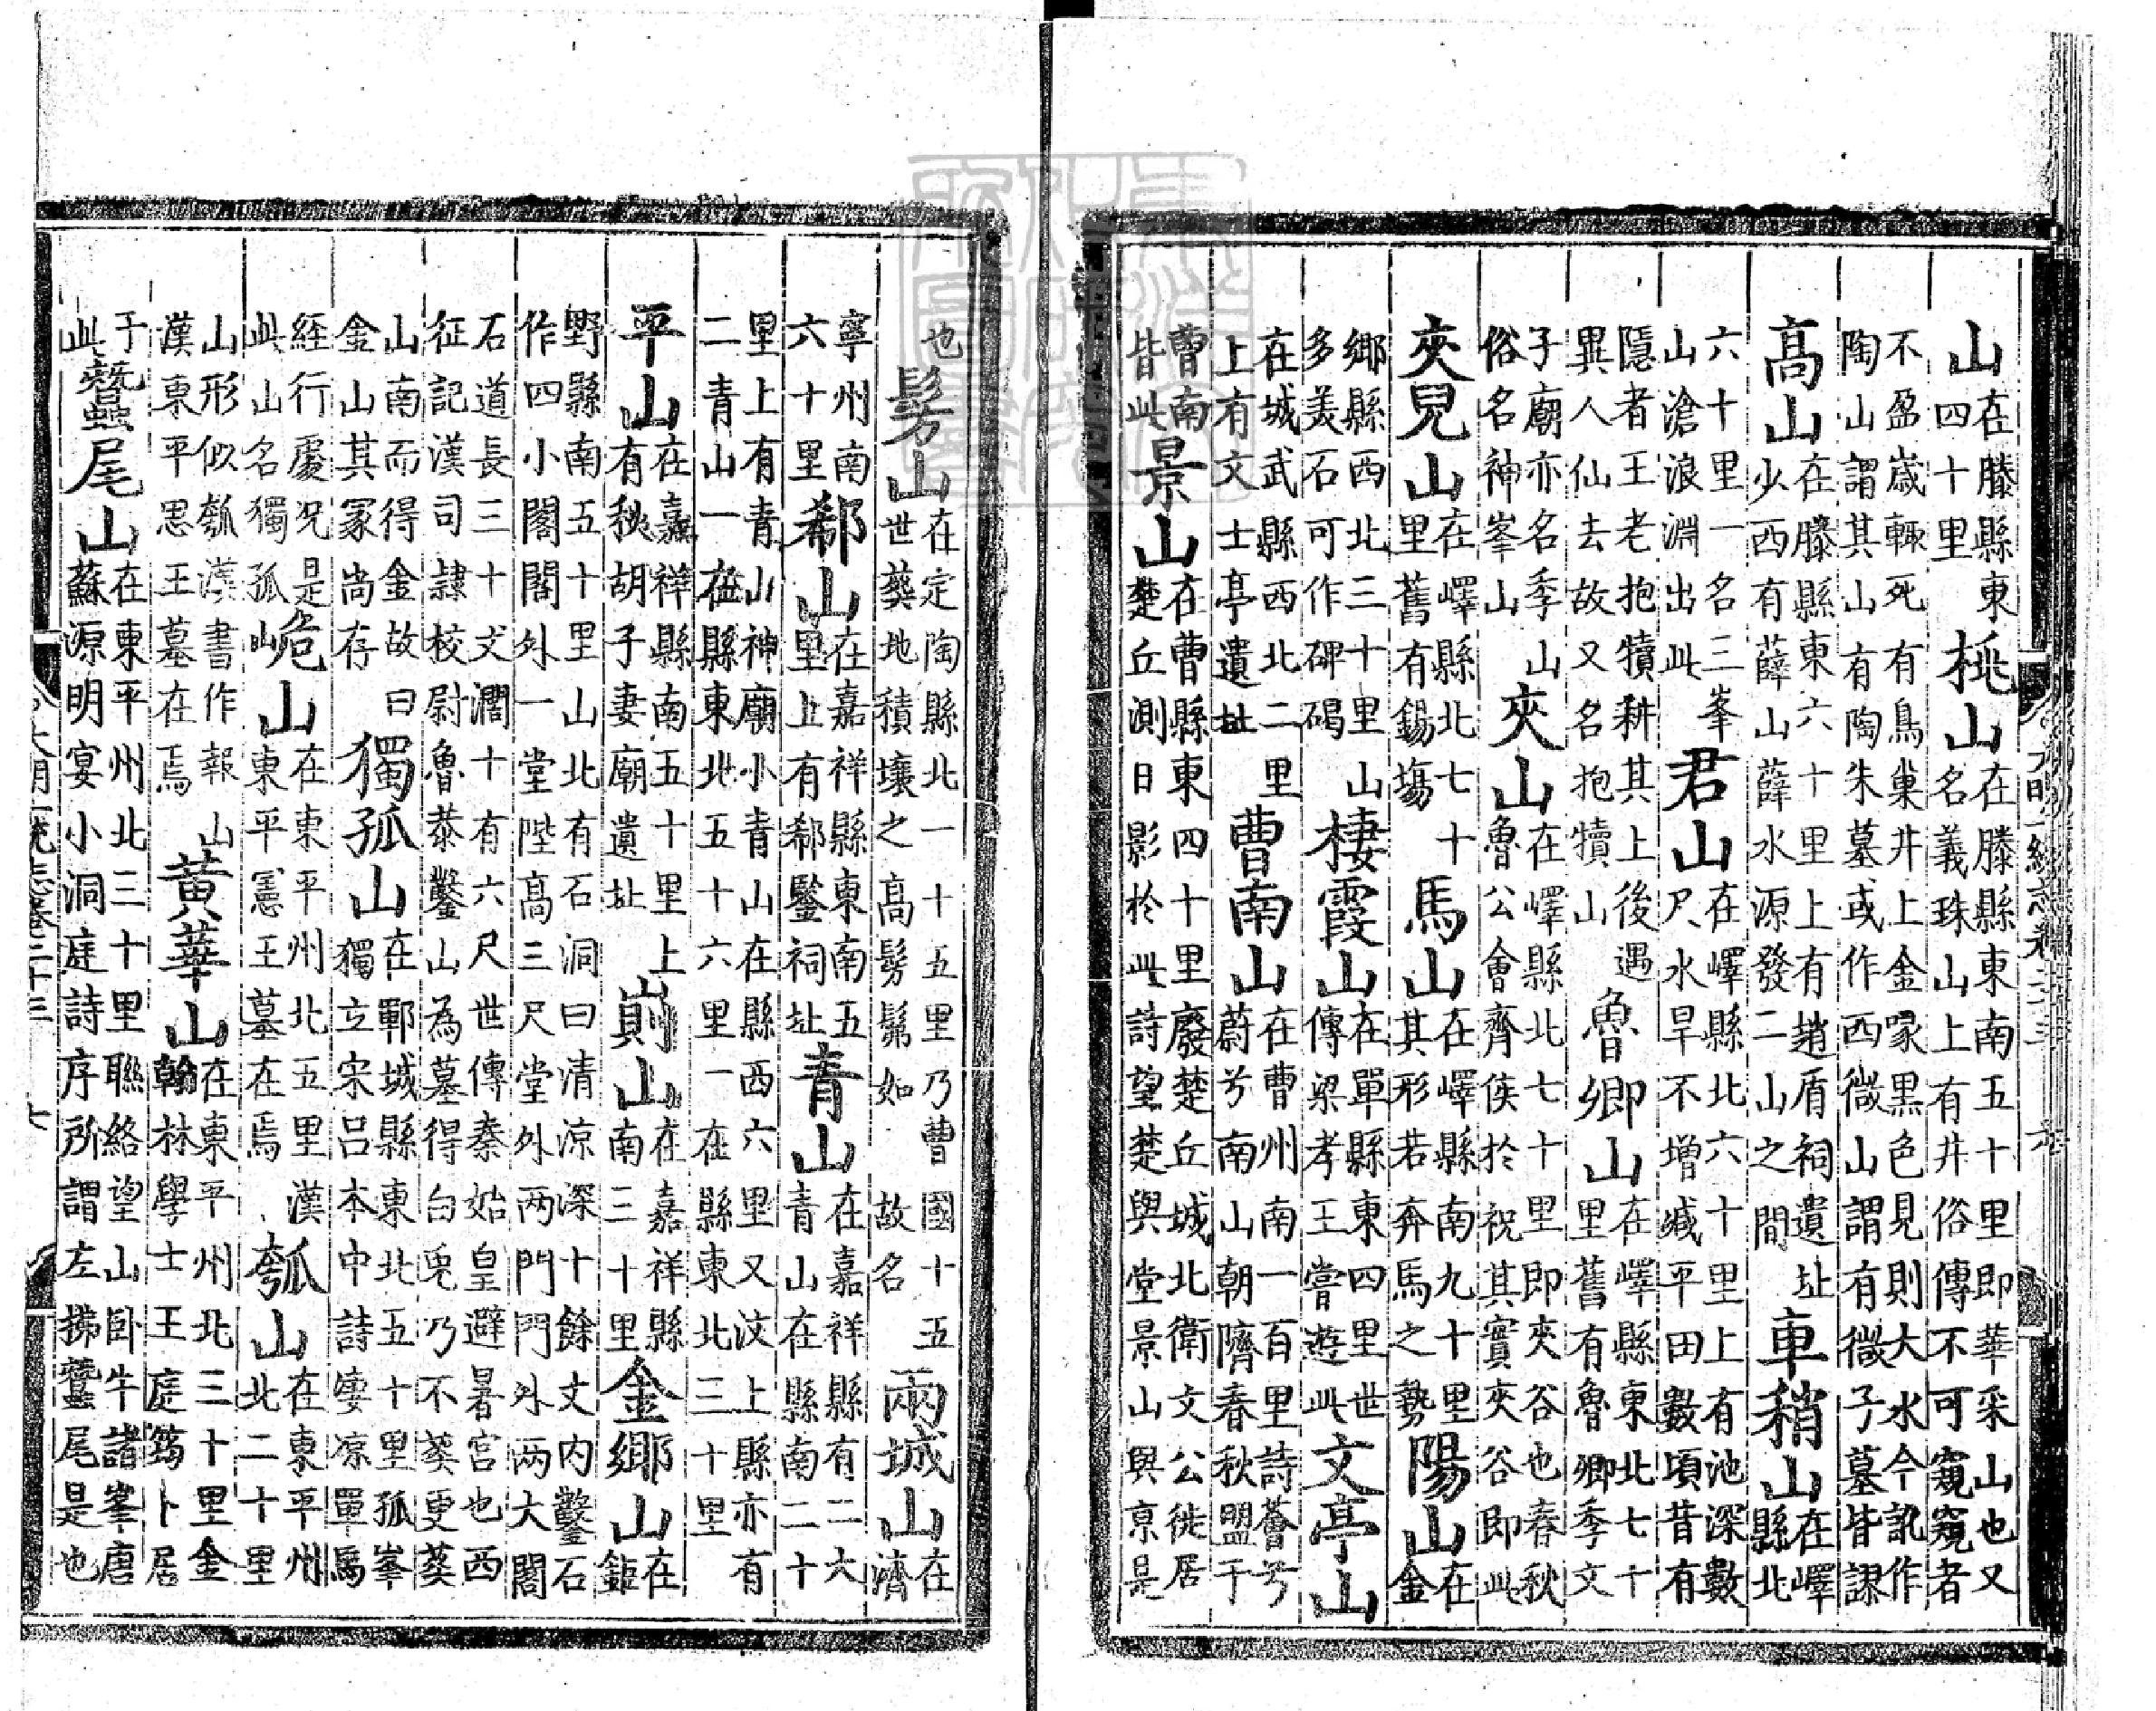 山在滕縣東四十里桃山在滕縣東南五十里即華采山也又名義珠山上有井俗傳不可窺窺者
不盈歲輒死有鳥巢井上金喙黑色見則大水今訛作陶山謂其山有陶朱墓或作西微山謂有微子墓皆謬
高山在滕縣東六十里上有趙盾祠遺址少西有薛山薛水源發二山之間車稍山在嶧縣北
六十里一名三峯山滄浪淵出此君山在嶧縣北六十里上有池深數尺水旱不增減平田數頃昔有
隱者王老抱犢耕其上後遇異人仙去故又名抱犢山魯卿山在嶧縣東北七十里舊有魯卿季文
子廟亦名季山俗名神峯山夾山在嶧縣北七十里即夾谷也春秋魯公會齊侯於祝其實夾谷即此
夾見山在嶧縣北七十里舊有錫塲馬山在嶧縣南九十里其形若奔馬之勢陽山在金
鄉縣西北三十里山多美石可作碑碣棲霞山在單縣東四里世傳梁孝王嘗遊此文亭山
在城武縣西北二里上有文士亭遺址曹南山在曹州南一百里詩薈兮蔚兮南山朝隮春秋盟于
曹南皆此景山在曹縣東四十里廢楚丘城北衛文公徙居楚丘測日影於此詩望楚與堂景山與京是
也髣山在定陶縣北一十五里乃曹國十五世葬地積壤之高髣髴如故名兩城山在濟
寧州南六十里郗山在嘉祥縣東南五里上有郗鑒祠址青山在嘉祥縣有二大青山在縣南二十
里上有青山神廟小青山在縣西六里又汶上縣亦有二青山一在縣東北五十六里一在縣東北三十里
平山在嘉祥縣南五十里上有秋胡子妻廟遺址崱山在嘉祥縣南三十里金鄉山在鉅
野縣南五十里山北有石洞曰清凉深十餘丈內鑿石作四小閣閣外一堂陛高三尺堂外兩門門外兩大閣
石道長三十丈濶十有六尺世傳秦始皇避暑宮也西征記漢司隷校尉魯恭鑿山為墓得白兎乃不葬更葬
山南而得金故曰金山其冢尚存獨孤山在鄆城縣東北五十里孤峯獨立宋呂本中詩凄凉單馬
經行處況是此山名獨孤峗山在東平州北五里漢東平憲王墓在焉瓠山在東平州北二十里
山形似瓠漢書作報山漢東平思王墓在焉黃華山在東平州北三十里金翰林學士王庭筠卜居
于此蠶尾山在東平州北三十里聯絡望山臥牛諸峯唐蘇源明宴小洞庭詩序所謂左拂蠶尾是也
大明一統志卷二十三 七